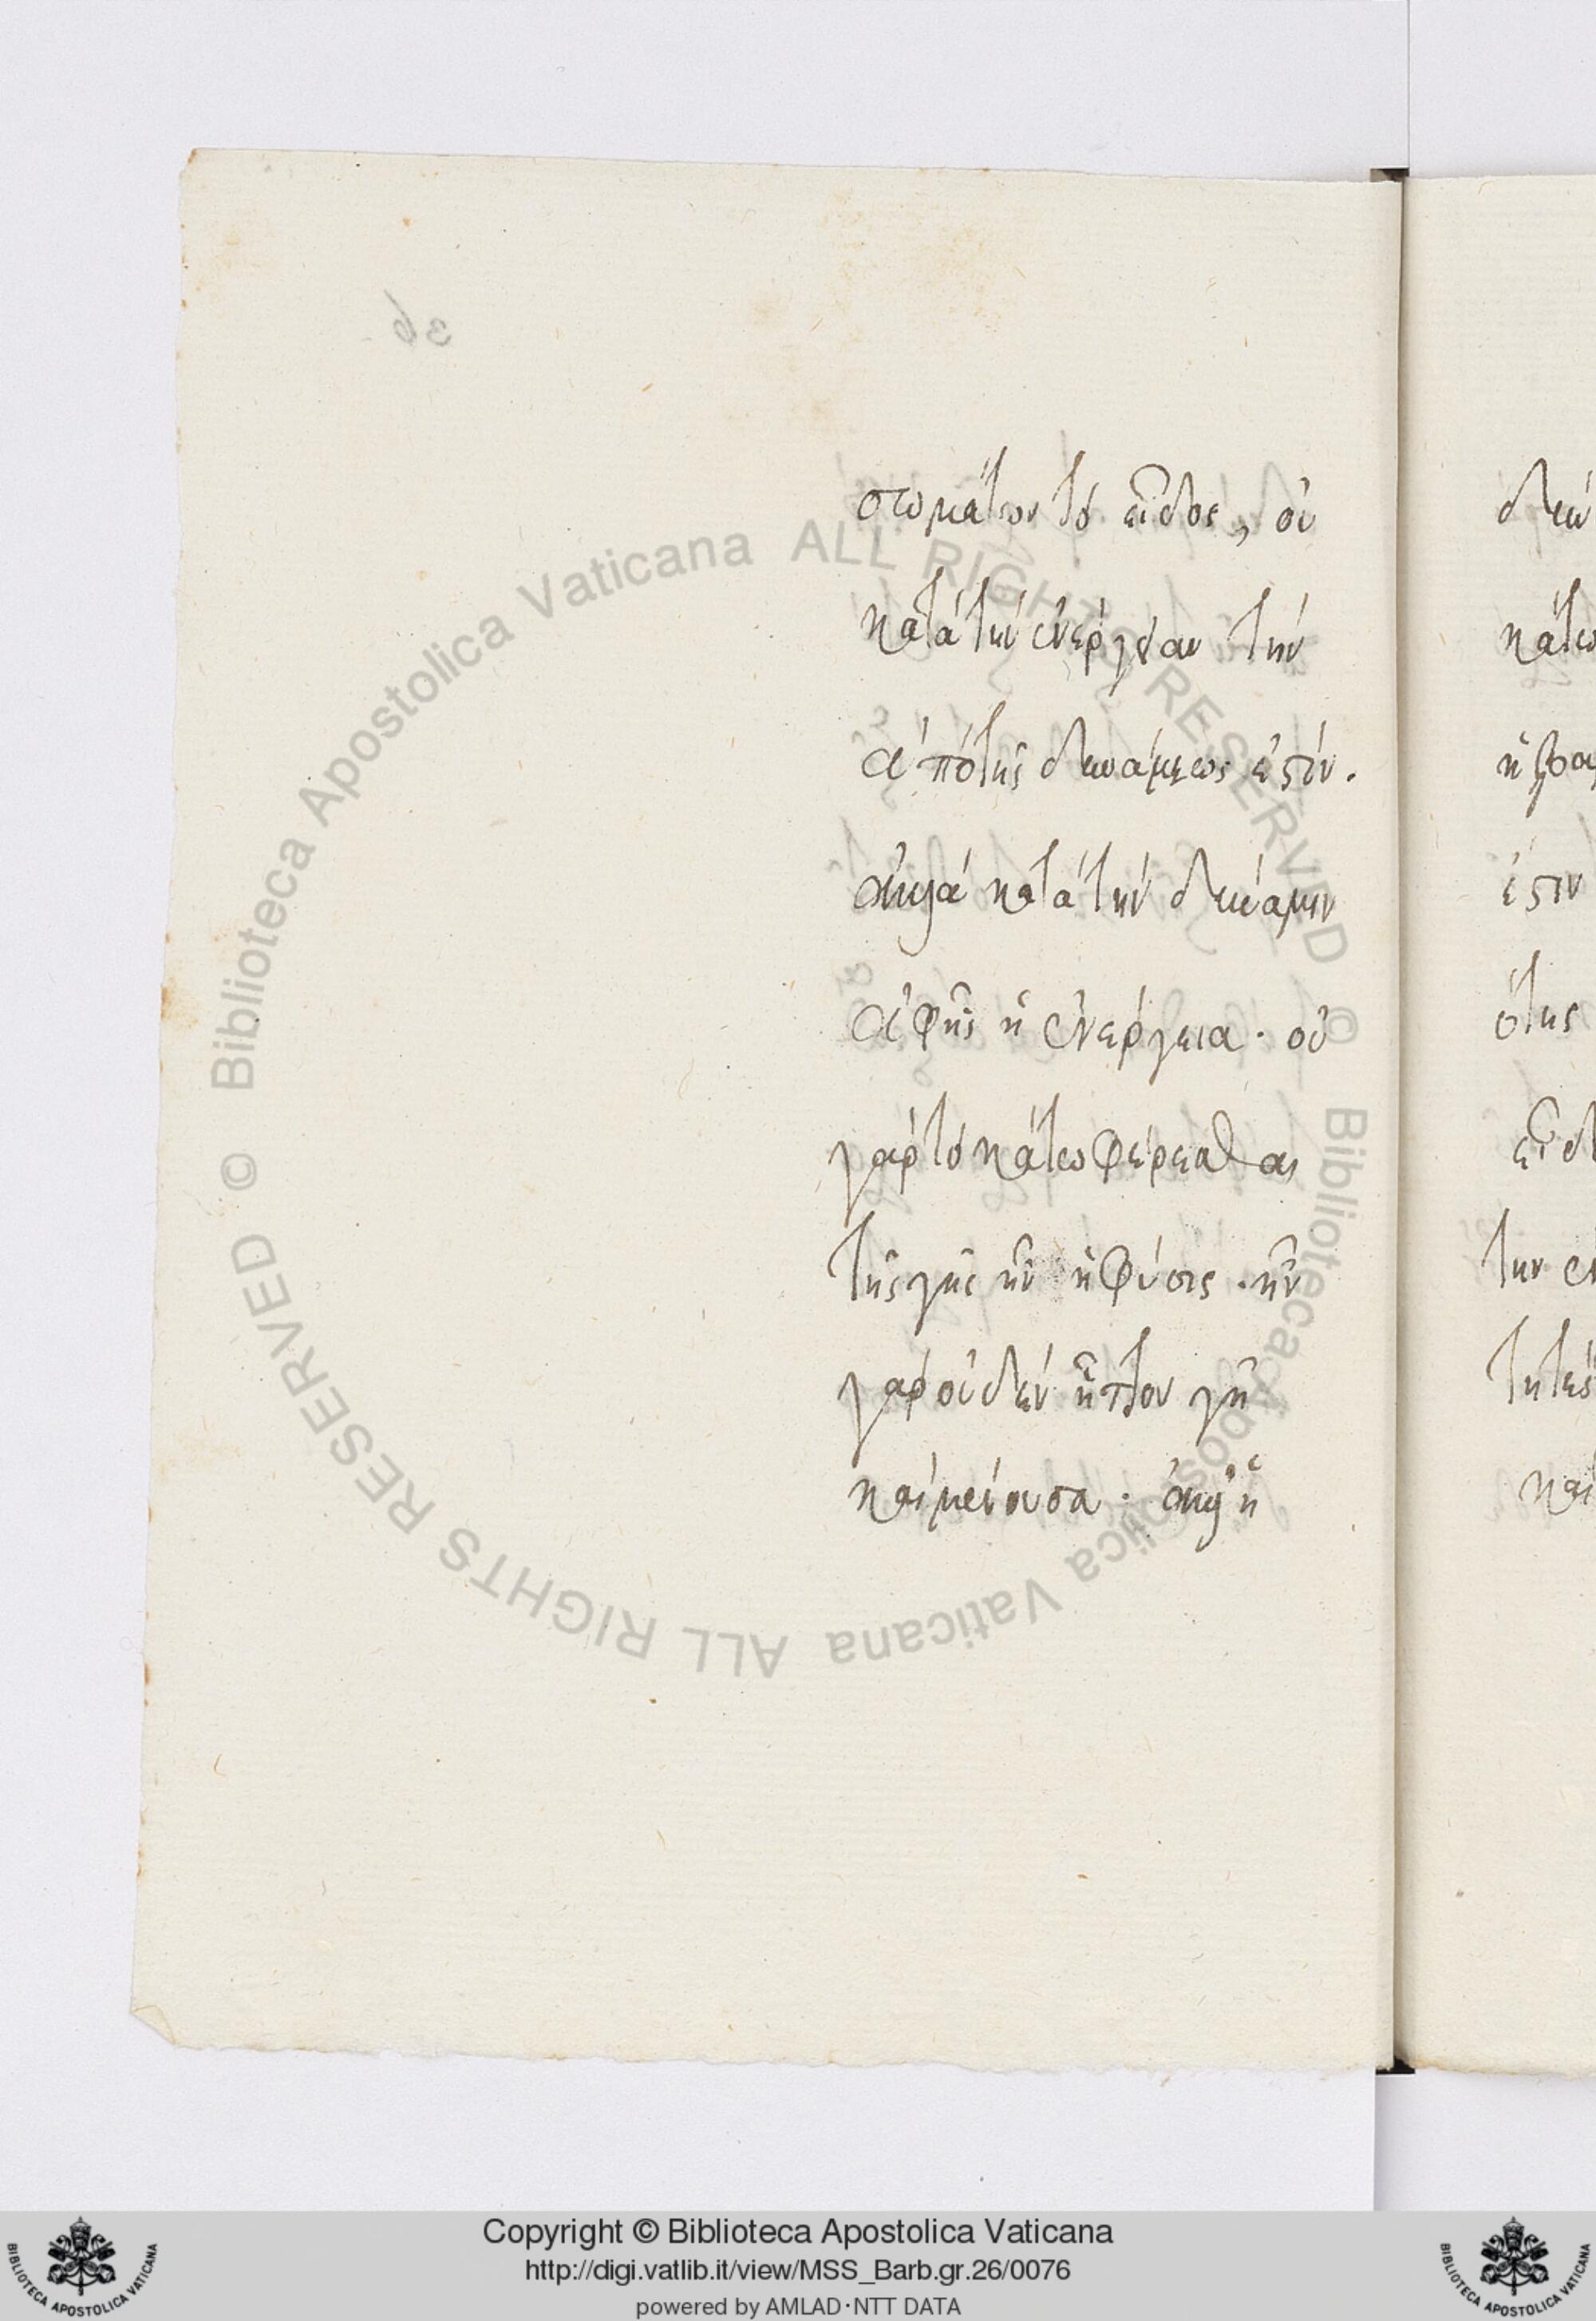 σωμάτων τὸ εἶδος, οὐ
κατὰ τὴν ἐνέργειαν τὴν
ἀπὸ τῆς δυνάμεως ἐστίν.
ἀλλὰ κατὰ τὴν δύναμιν
ἀφ' ἧς ἡ ἐνέργεια· οὐ
γὰρ τὸ κάτω φέρεσθαι
τῆς γῆς ἦν ἡ φύσις· ἦν
γὰρ οὐδὲν ἧττον γῆ
καὶ μένουσα· ἀλλ' ἡ
δυν
κάτω
ἐστιν
εἶδ
την
καὶ
© Biblioteca Apostolica Vaticana ALL RIGHTS RESERVED
© Biblioteca Apostolica Vaticana ALL RIGHTS RESERVED
Copyright © Biblioteca Apostolica Vaticana
http://digi.vatlib.it/view/MSS_Barb.gr.26/0076
powered by AMLAD·NTT DATA
BIBLIOTECA APOSTOLICA VATICANA
BIBLIOTECA APOSTOLICA VATICANA